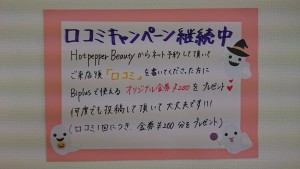 口コミキャンペーン継続中
Hotpepper Beautyからネット予約して頂いて
ご来店後「口コミ」を書いてくださった方に
Biplusで使える オリジナル金券¥200を プレゼント
何度でも投稿して頂いて大丈夫です!!!
(口コミ1回につき、金券¥200分をプレゼント)